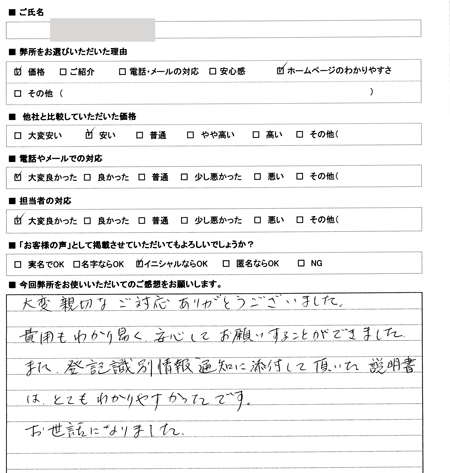 ■ ご氏名
■ 弊所をお選びいただいた理由
☑ 価格 □ご紹介 □電話・メールの対応 □安心感 ☑ホームページのわかりやすさ
□ その他 ( )
■ 他社と比較していただいた価格
□ 大変安い ☑ 安い □ 普通 □ やや高い □ 高い □ その他(
■ 電話やメールでの対応
☑ 大変良かった □ 良かった □ 普通 □ 少し悪かった □ 悪い □ その他(
■ 担当者の対応
☑ 大変良かった □ 良かった □ 普通 □ 少し悪かった □ 悪い □ その他(
■「お客様の声」として掲載させていただいてもよろしいでしょうか?
□ 実名でOK □名字ならOK ☑イニシャルならOK □ 匿名ならOK □ NG
■ 今回弊所をお使いいただいてのご感想をお願いします。
大変親切なご対応ありがとうございました。
費用もわかり易く、安心してお願いすることができました。
また、登記識別情報通知に添付して頂いた説明書
は、とてもわかりやすかったです。
お世話になりました。